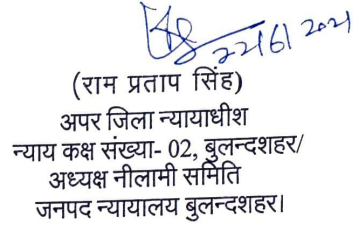 22/6/2021
(राम प्रताप सिंह)
अपर जिला न्यायाधीश
न्याय कक्ष संख्या- 02, बुलन्दशहर/
अध्यक्ष नीलामी समिति
जनपद न्यायालय बुलन्दशहर।